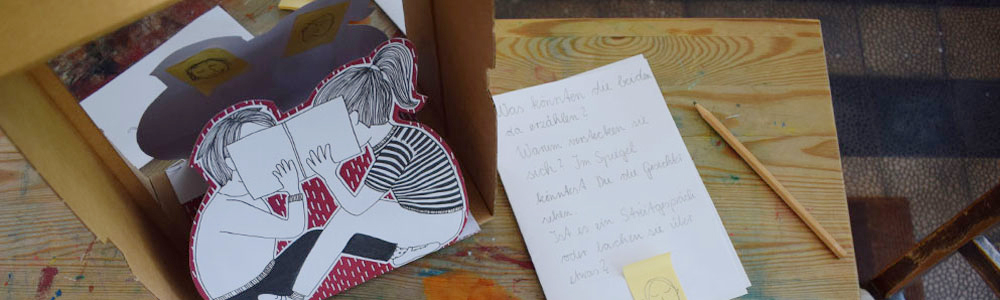 Was könnten die beiden
da erzählen?
Warum verstecken sie
sich? Im Spiegel
könntest Du die Gesichter
sehen.
Ist es ein Streitgespräch
oder lachen sie über
etwas?